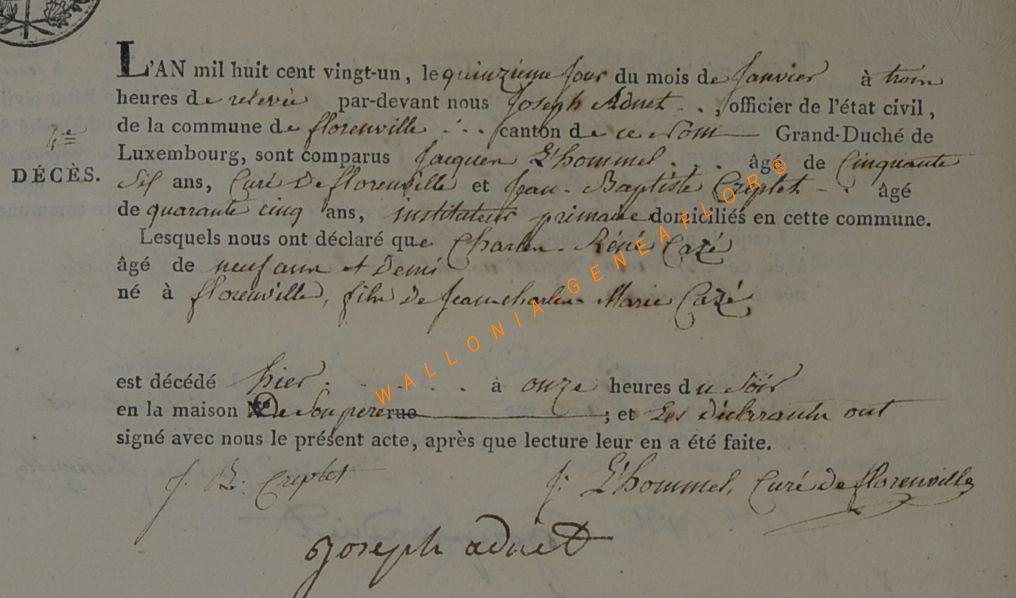 L'AN mil huit cent vingt-un, le quinzieme jour du mois de Janvier à trois
heures de relevée par-devant nous Joseph Adnet officier de l'état civil,
de la commune de florenville canton de ce Nom Grand-Duché de
DÉCÈS.
Luxembourg, sont comparus Jacques L'hommel . . . âgé de Cinquante
Six ans, Curé De florenville et Jean-Baptiste Creptet - . âgé
de quarante cinq ans, instituteur primaire domiciliés en cette commune.
Lesquels nous ont déclaré que Charles-Réné Cazé
âgé de neuf ans et Demi
né à florenville, fils de Jean charles Marie Cazé
est décédé hier . . . . . à onze heures du Soir
en la maison de Son pere rue ; et Les Déclarants ont
signé avec nous le présent acte, après que lecture leur en a été faite.
J. B. Creptet J. L'hommel, Curé De florenville
Joseph adnet
WALLONIA-GENEAFLOR©